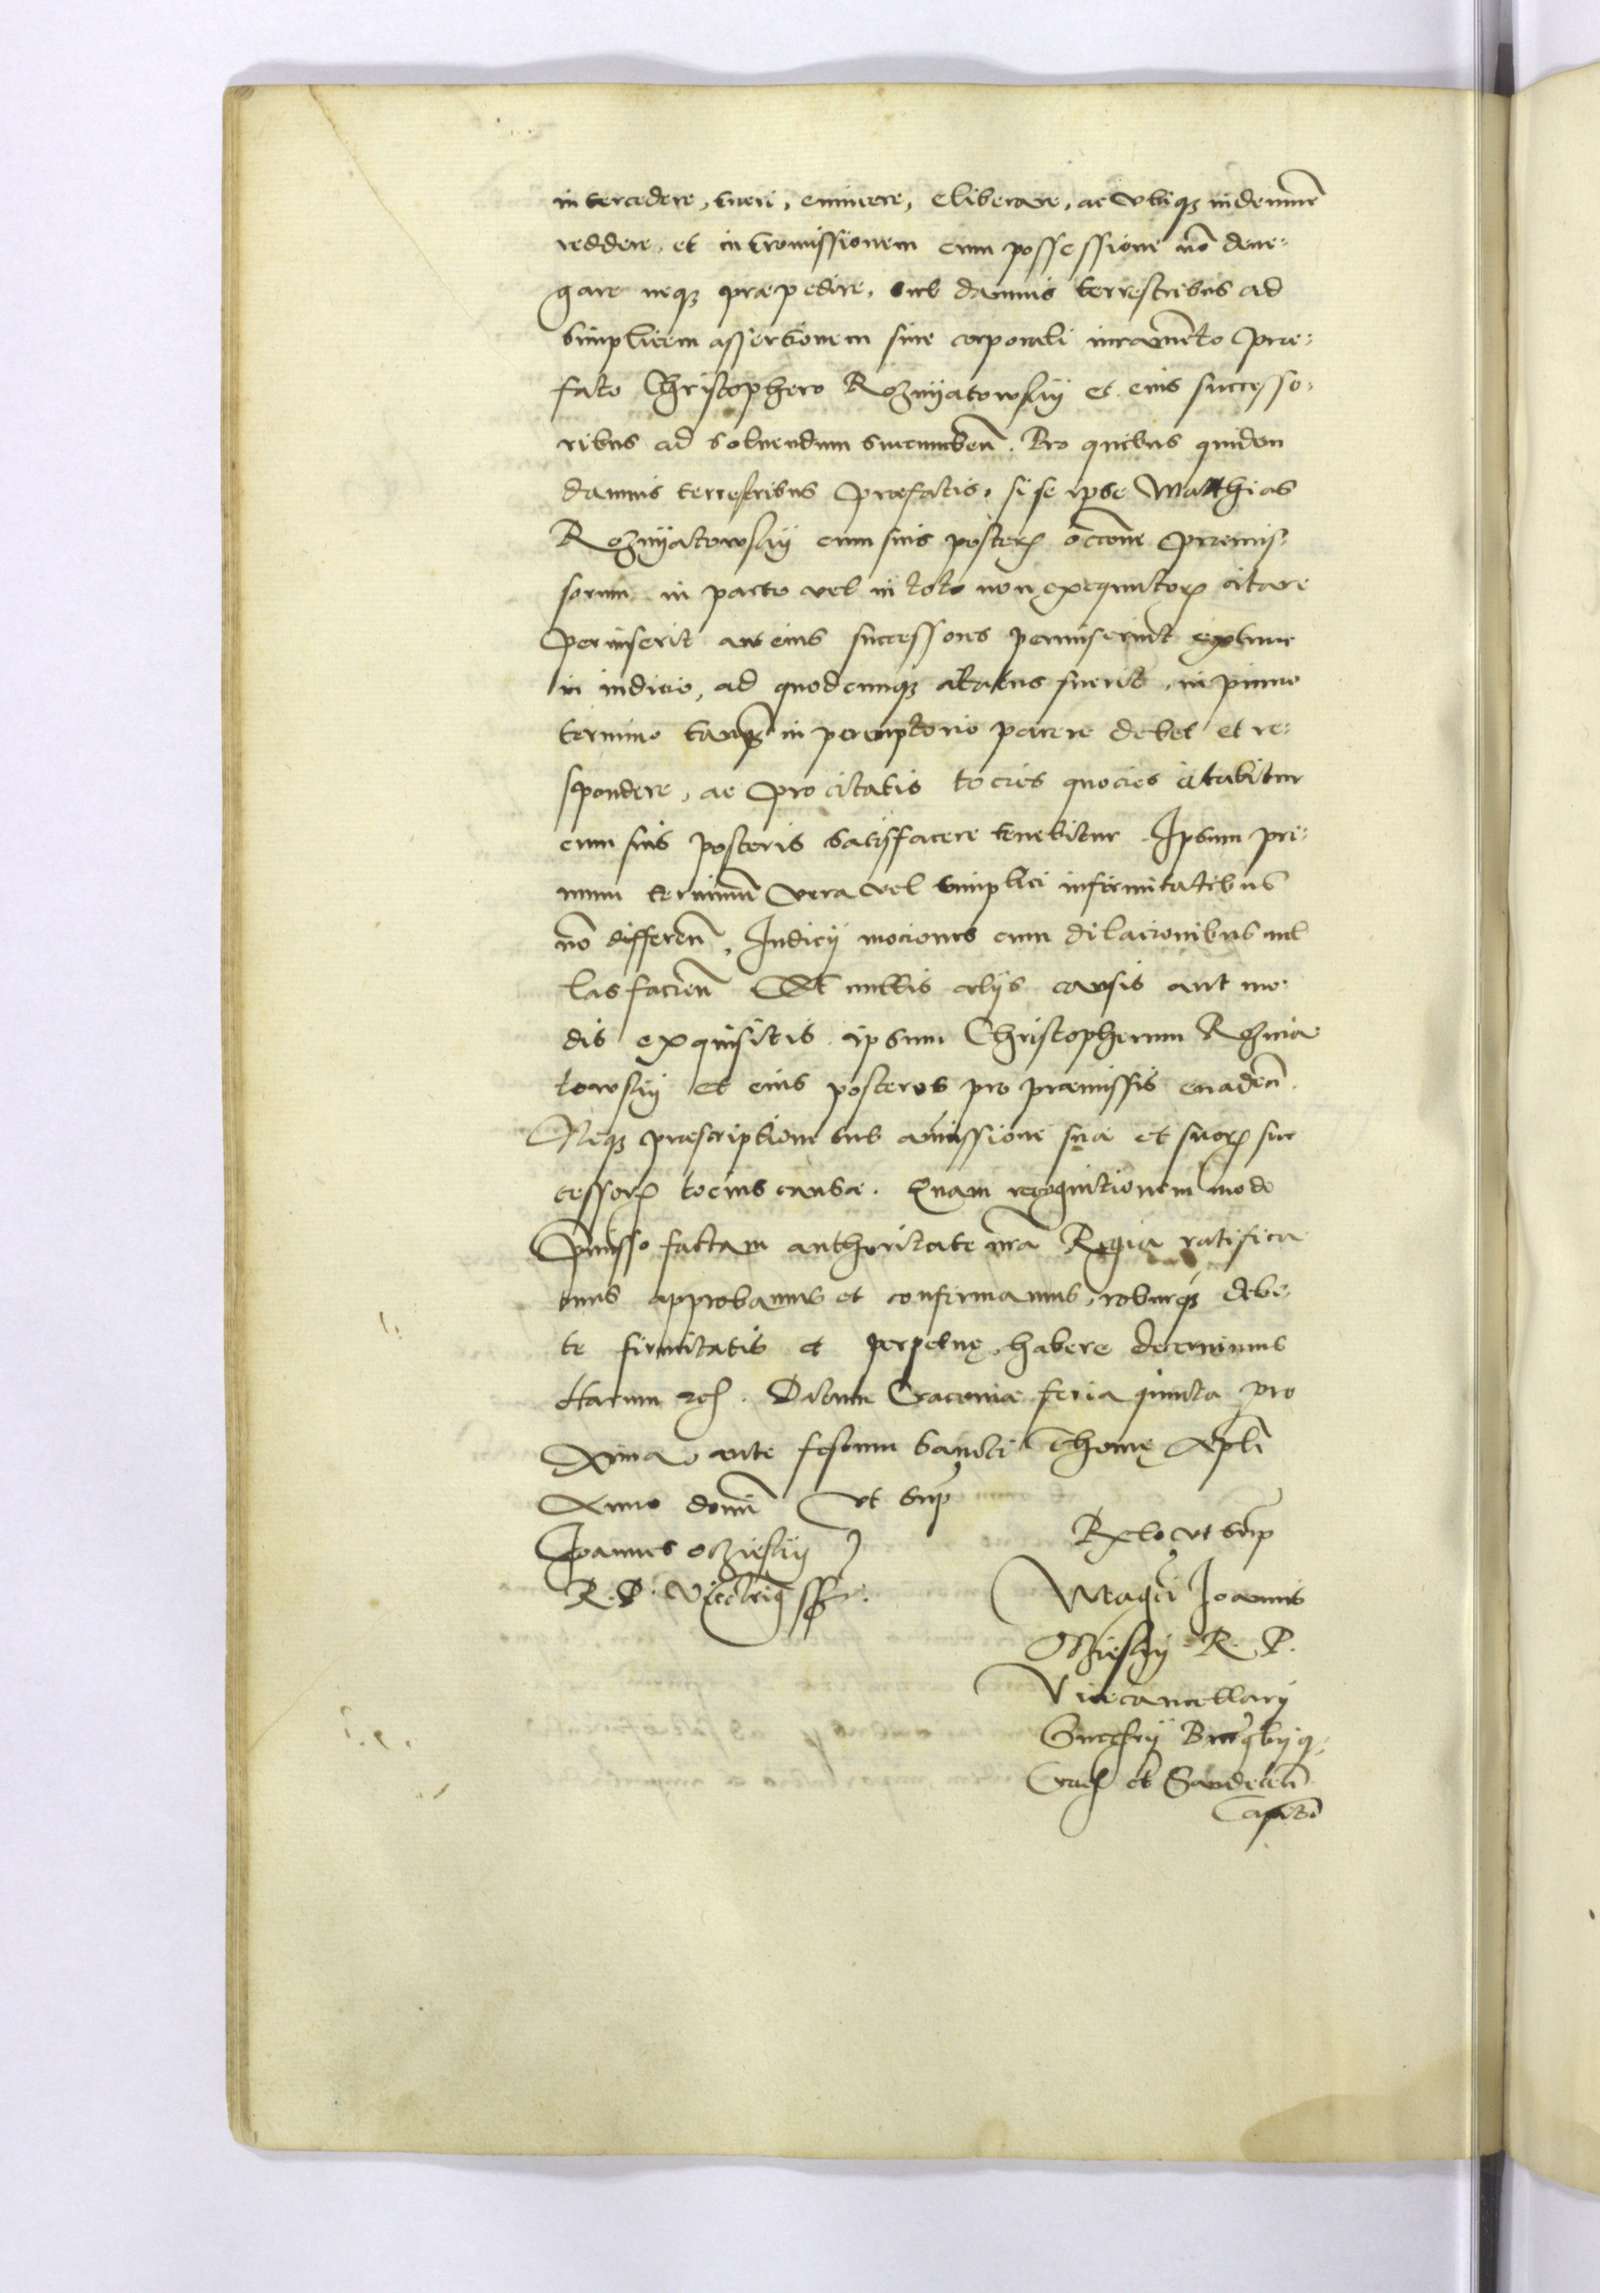 intercedere, tueri, evincere, eliberare, ac ubiq indemnem
reddere, et intromissionem cum possessione nō dene-
gare neq præpedire, sub damnis terrestribus ad
simplicem assertionem sine corporali iuramēto præ-
fato Christophero Roznyatowsky et eius successo-
ribus ad solvendum succumben̄. Pro quibus quidem
damnis terrestribus præfatis, si se ipse Matthias
Roznyatowsky cum suis posterꝝ occōne præmis-
sorum in parte vel in toto non exequutorꝝ citare
permiserit aut eius successores permiserint extunc
in iudicio, ad quodcunq citatus fuerit, in primo
termino tanq̄ in peremptorio parere debet et re-
spondere, ac pro citatis tocies quocies citabitur
cum suis posteris satisfacere tenebitur. Ipsum pri-
mum terminū vera vel simplici infirmitatibus
nō differen̄. Iudicij mociones cum dilacionibus nul
las facien̄ Et nullis alijs causis aut mo-
dis exquisitis ipsum Christopherum Roznia
towsky et eius posteros pro præmissis evaden̄.
Neq præscriptione sub amissione sua et suorꝝ suc
cessorꝝ tocius causæ. Quam recognitionem modo
præmisso factam authoritate n̄ra Regia ratifica
mus approbamus et confirmamus, roburq debi-
te firmitatis et perpetuę habere decernimus
Harum etc. Datum Cracoviæ feria quinta pro
xima ante festum Sancti Thomę Apl̄i
Anno domī ut sup̄
Joannes Ocziesky
R. P. Vicecancellariꝯ sspt.
Rel̄o ut sup̄
Mag̃ci Joannis
Ocziesky R. P.
Vicecancellarij
Succam̄ij Burgb̄ijq
Crac̄ et Sandecen̄
Capit̄i